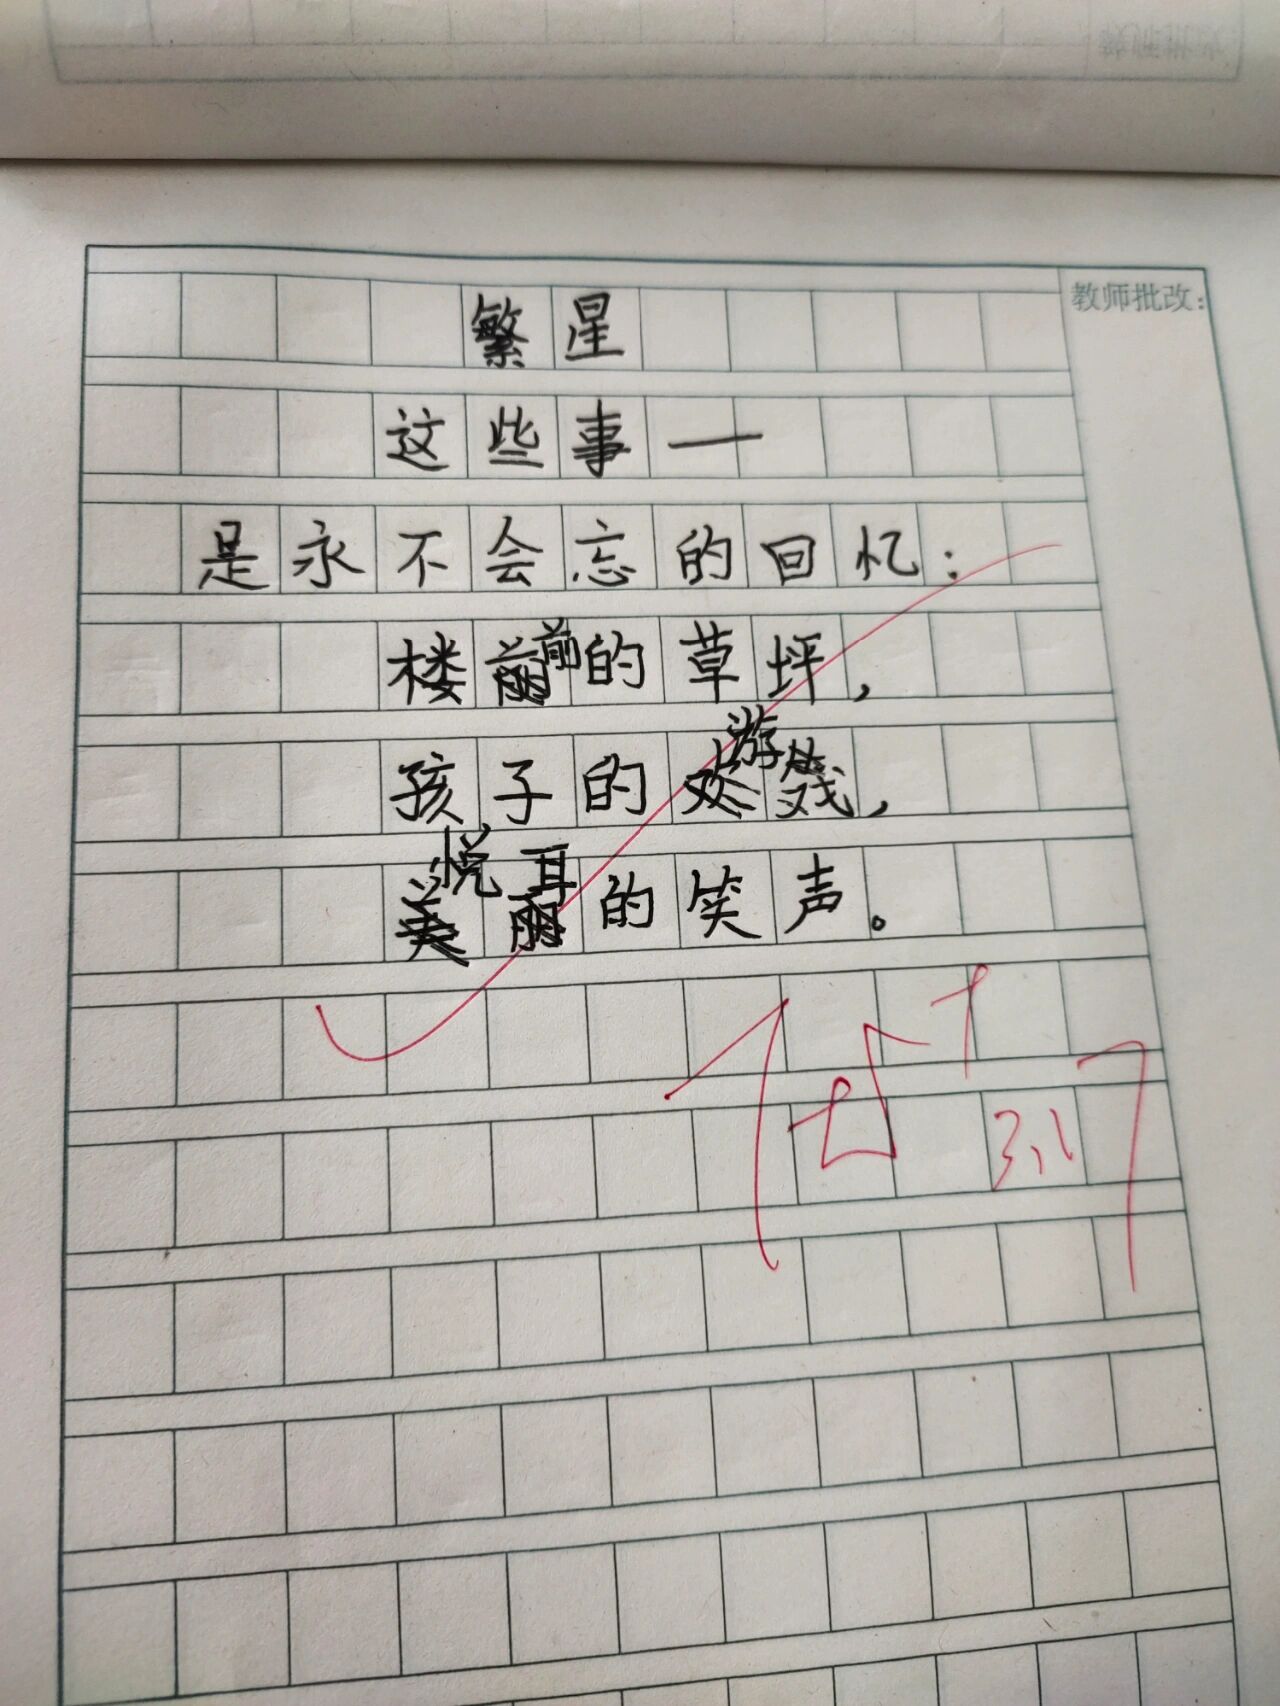 教师批改:
繁星
这些事一
是永不会忘的回忆:
楼前的草坪,
孩子的游戏,
悦耳的笑声。
3.17